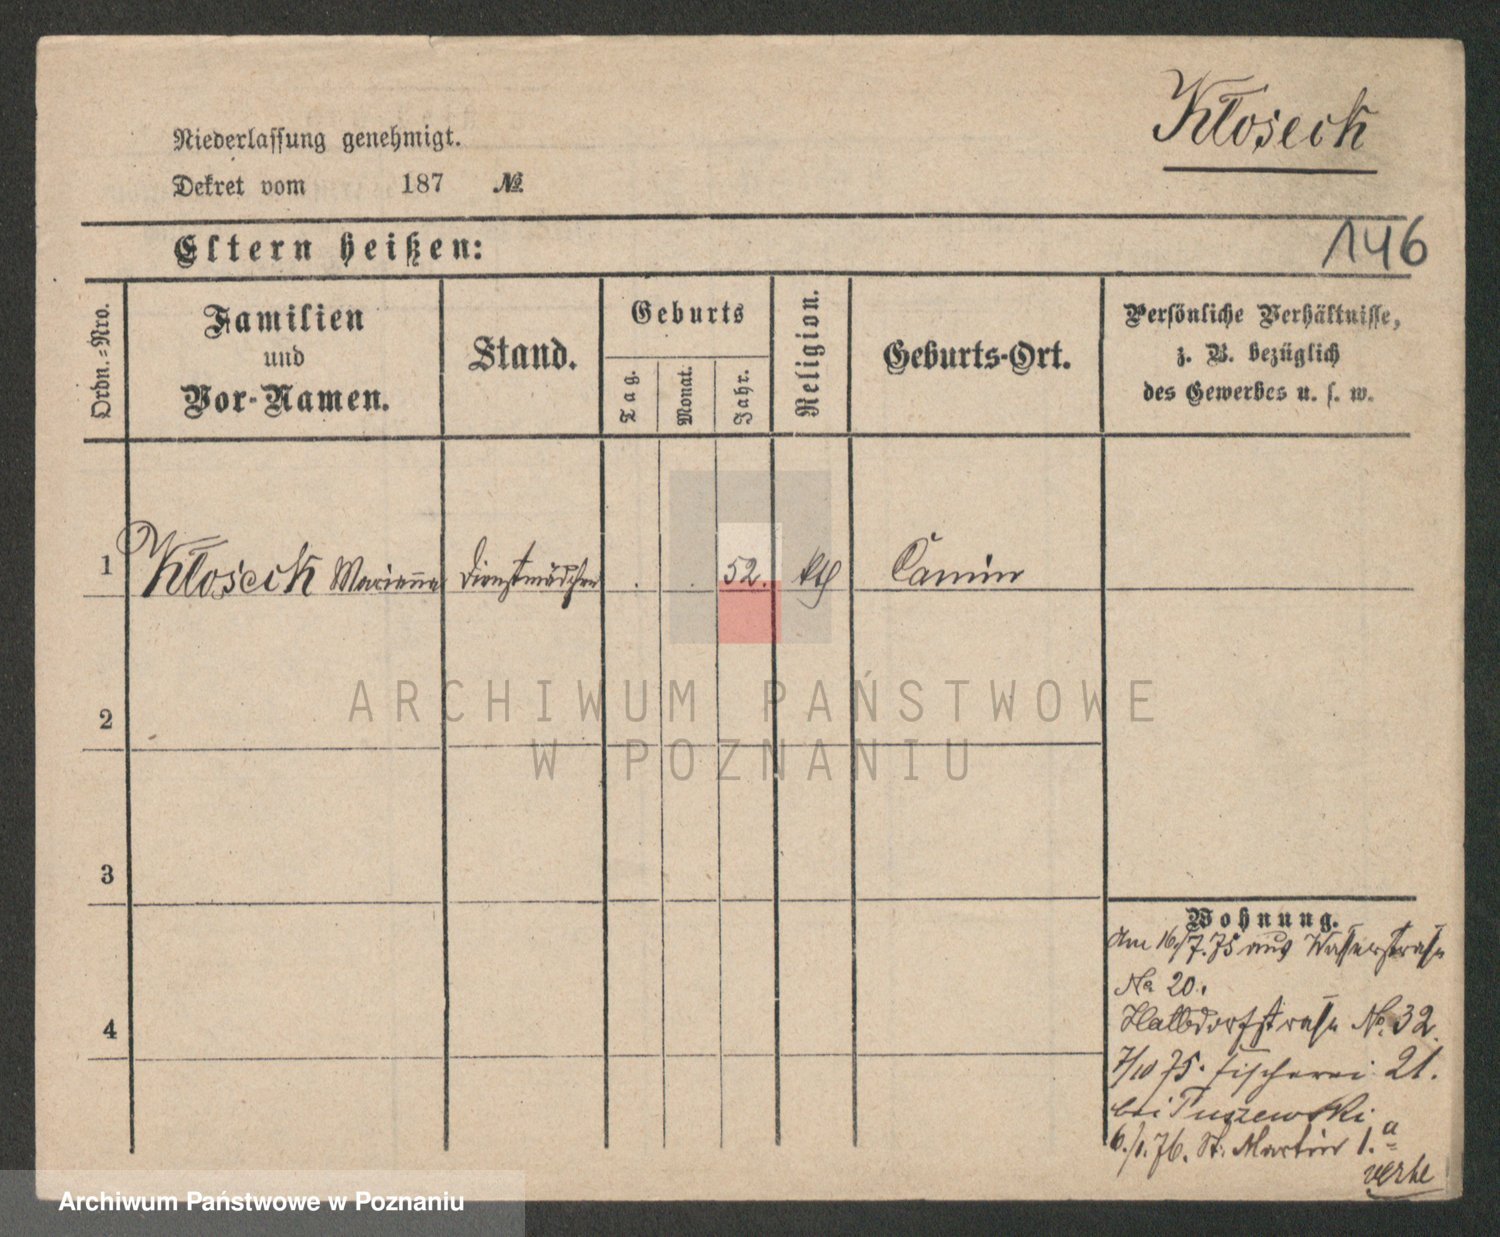 Kłoseck
Niederlassung genehmigt.
Dekret vom 187 №
146
Eltern heißen:
Ordn.-Nro.
Familien
und
Vor-Namen.
Stand.
Geburts
Tag.
Monat.
Jahr.
Religion.
Geburts-Ort.
Persönliche Verhältnisse,
z. B. bezüglich
des Gewerbes u. s. w.
1 Kłoseck Marianna Dienstmädchen . . 52. kth Camin
2
3
4
Wohnung.
Am 16/7.75 aus Wasserstraße
No 20.
Halbdorfstraße No. 32.
7/10 75. Fischerei 21.
bei Tuszewski
6./1. 76. St. Martin 1.a
ARCHIWUM PAŃSTWOWE
W POZNANIU
Archiwum Państwowe w Poznaniu